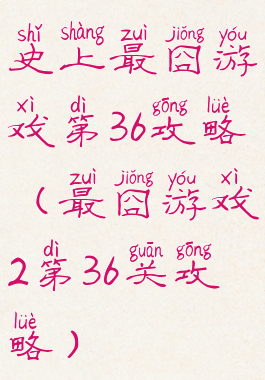 shǐ shàng zuì jiǒng yóu
史上最囧游
xì dì gōng lüè
戏第36攻略
zuì jiǒng yóu xì
（最囧游戏
dì guān gōng
2第36关攻
lüè
略）